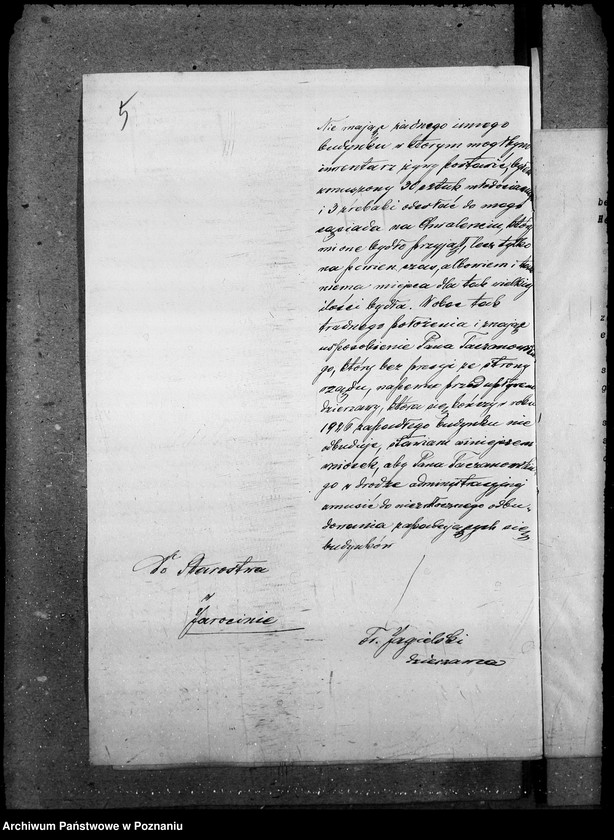 5
Nie mając żadnego innego
budynku w którym mógłbym
inwentarz żywy postawić, byłem
zmuszony 30 sztuk młodocianego
i 3 źrebaki odesłać do mego
sąsiada na Chwalencin, który
mi one bydło przyjął, lecz tylko
na pewien czas, albowiem i tam
niema miejsca dla tak wielkiej
ilości bydła. Wobec tak
trudnego położenia i znając
usposobienie Pana Taczanowskie
go, który bez presji ze strony
rządu, napewno przed upływem
dzierżawy, która się kończy w roku
1926 zapadłego budynku nie
odbuduje, stawiam niniejszem
wniosek, aby Pana Taczanowskie
go w drodze administracyjnej
zmusić do niezwłocznego odbu-
dowania zapadających się
budynków
Do Starostwa
w
Jarocinie
Fr. Jagielski
dzierżawca
Archiwum Państwowe w Poznaniu